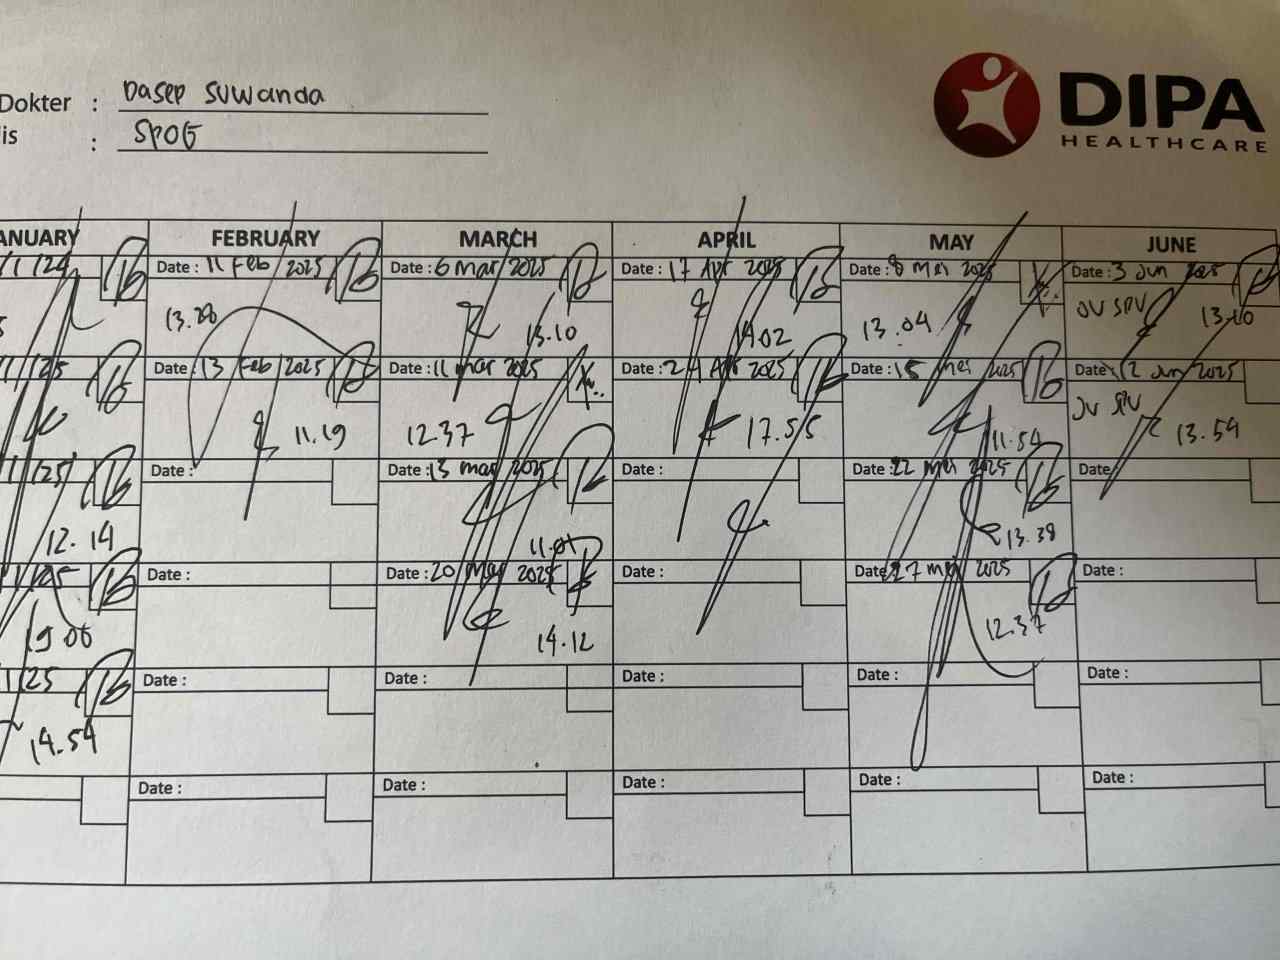 Dokter : Dasep Suwanda
is : SPOG
DIPA
HEALTHCARE
ANUARY FEBRUARY MARCH APRIL MAY JUNE
/1/24 Date : 11 Feb 2025 Date : 6 mar 2025 Date : 17 Apr 2025 Date : 8 Mei 2025 Date : 3 Jun 2025
13.28 13.10 14.02 13.04 JV SPV 13.10
/1/25 Date : 13 Feb 2025 Date : 11 mar 2025 Date : 24 Apr 2025 Date : 15 mei 2025 Date : 12 Jun 2025
11.19 12.37 17.55 11.54 JV SPV 13.59
/1/25 Date : Date : 13 mar 2025 Date : Date : 22 mei 2025 Date
12.14 11.01 13.38
/1/25 Date : Date : 20 Mar 2025 Date : Date : 27 mei 2025 Date :
19.06 14.12 12.37
/1/25 Date : Date : Date : Date : Date :
14.54
Date : Date : Date : Date : Date :